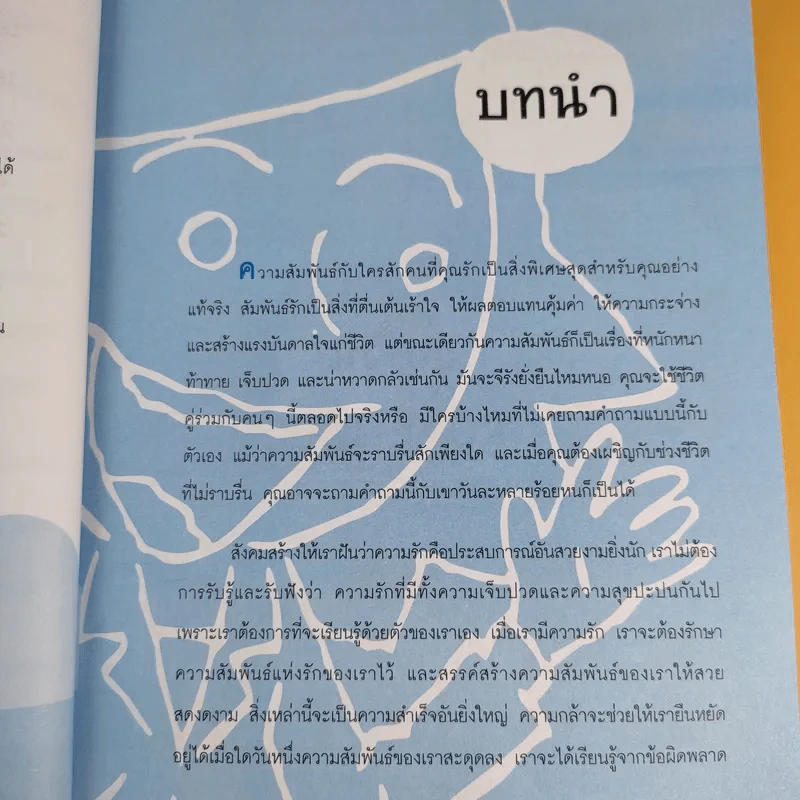 บทนำ
ความสัมพันธ์กับใครสักคนที่คุณรักเป็นสิ่งพิเศษสุดสำหรับคุณอย่าง
แท้จริง สัมพันธ์รักเป็นสิ่งที่ตื่นเต้นเร้าใจ ให้ผลตอบแทนคุ้มค่า ให้ความกระจ่าง
และสร้างแรงบันดาลใจแก่ชีวิต แต่ขณะเดียวกันความสัมพันธ์ก็เป็นเรื่องที่หนักหนา
ท้าทาย เจ็บปวด และน่าหวาดกลัวเช่นกัน มันจะจีรังยั่งยืนไหมหนอ คุณจะใช้ชีวิต
คู่ร่วมกับคนๆ นี้ตลอดไปจริงหรือ มีใครบ้างไหมที่ไม่เคยถามคำถามแบบนี้กับ
ตัวเอง แม้ว่าความสัมพันธ์จะราบรื่นสักเพียงใด และเมื่อคุณต้องเผชิญกับช่วงชีวิต
ที่ไม่ราบรื่น คุณอาจจะถามคำถามนี้กับเขาวันละหลายร้อยหนก็เป็นได้
สังคมสร้างให้เราฝันว่าความรักคือประสบการณ์อันสวยงามยิ่งนัก เราไม่ต้อง
การรับรู้และรับฟังว่า ความรักที่มีทั้งความเจ็บปวดและความสุขปะปนกันไป
เพราะเราต้องการที่จะเรียนรู้ด้วยตัวของเราเอง เมื่อเรามีความรัก เราจะต้องรักษา
ความสัมพันธ์แห่งรักของเราไว้ และสรรค์สร้างความสัมพันธ์ของเราให้สวย
สดงดงาม สิ่งเหล่านี้จะเป็นความสำเร็จอันยิ่งใหญ่ ความกล้าจะช่วยให้เรายืนหยัด
อยู่ได้เมื่อใดวันหนึ่งความสัมพันธ์ของเราสะดุดลง เราจะได้เรียนรู้จากข้อผิดพลาด